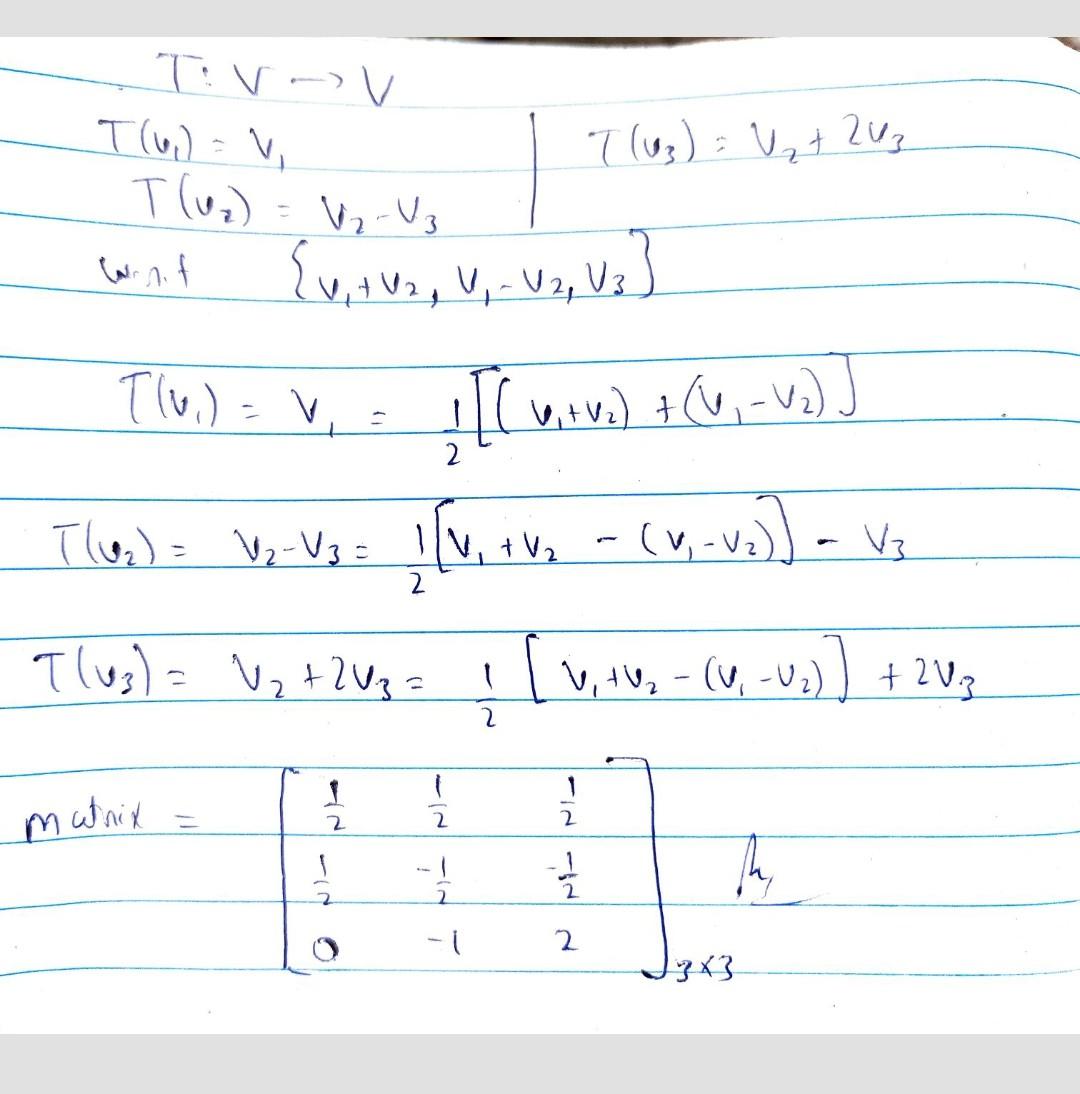 T: V → V
T(v₁) = V₁ | T(v₃) = V₂ + 2v₃
T(v₂) = V₂ - V₃
w.r.t {v₁+V₂, V₁-V₂, V₃}
T(v₁) = V₁ = 1/2 [(v₁+v₂) + (V₁-V₂)]
T(v₂) = V₂-V₃ = 1/2 [V₁+V₂ - (V₁-V₂)] - V₃
T(v₃) = V₂+2V₃ = 1/2 [V₁+V₂ - (V₁-V₂)] + 2V₃
matrix = [ 1/2 1/2 1/2
1/2 -1/2 -1/2
0 -1 2 ] 3×3